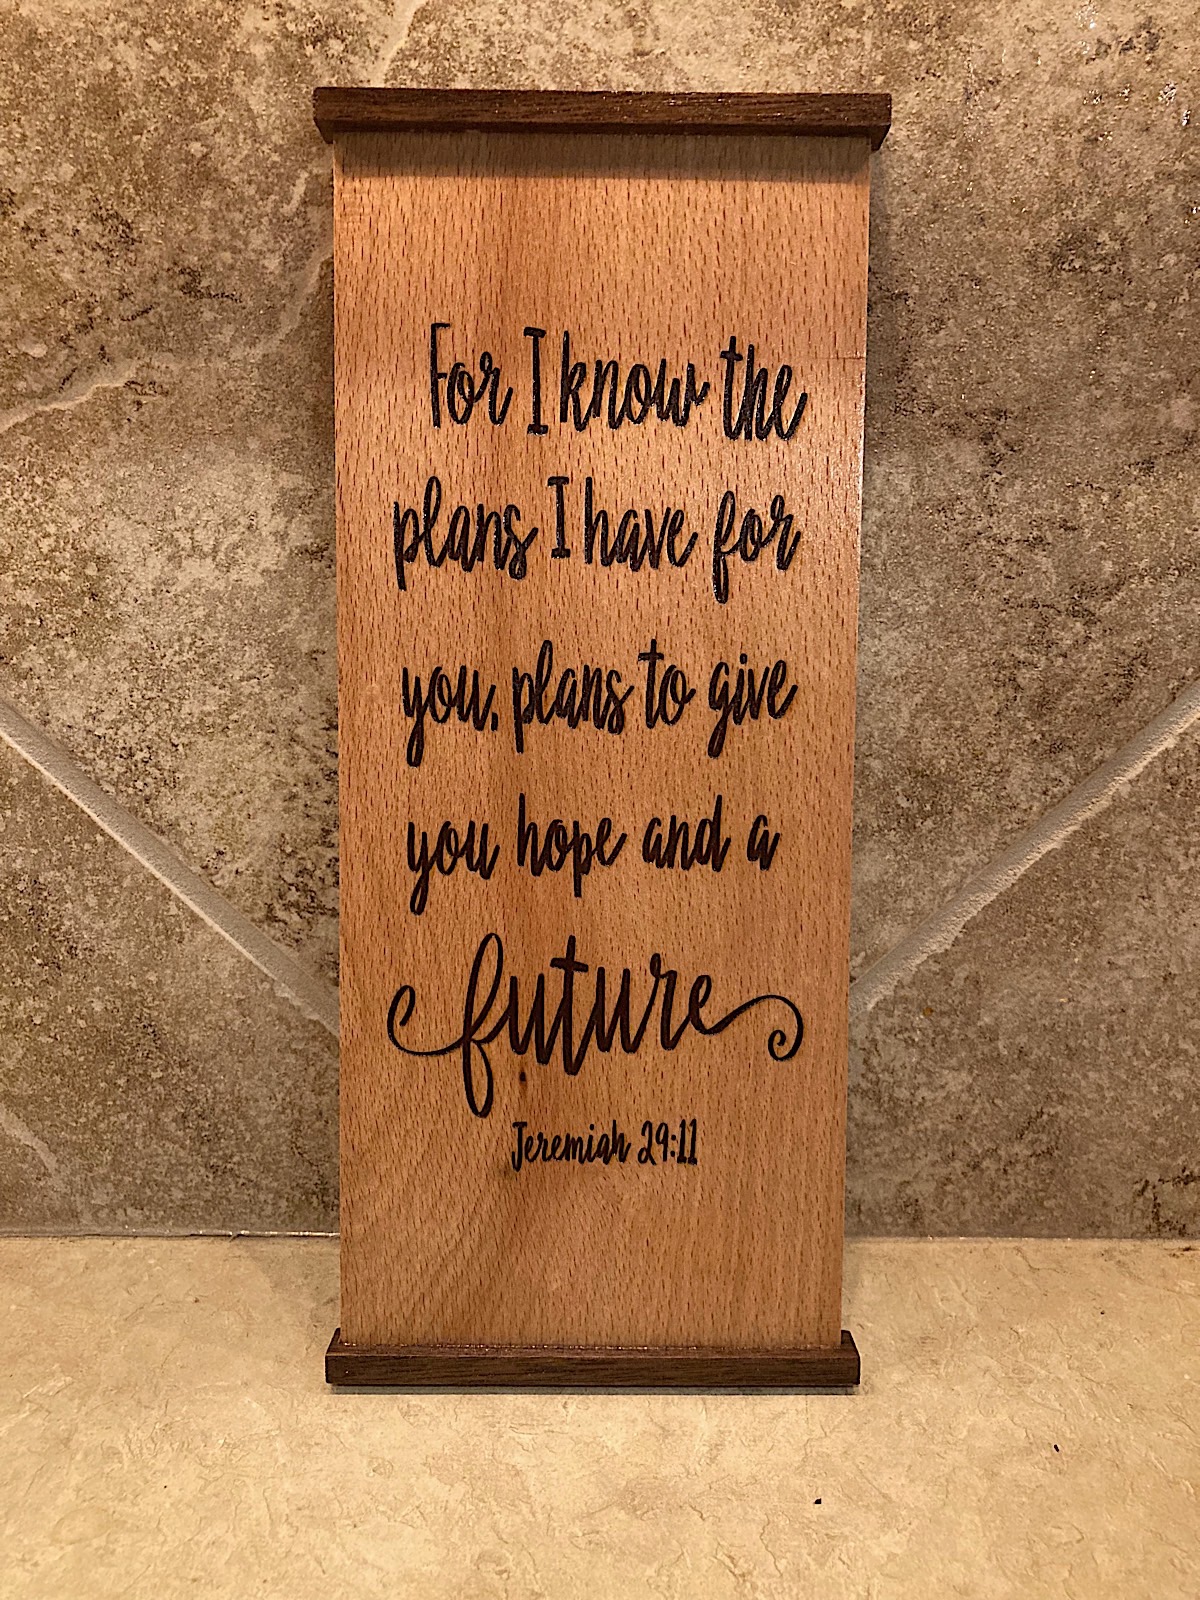 For I know the
plans I have for
you, plans to give
you hope and a
future
Jeremiah 29:11